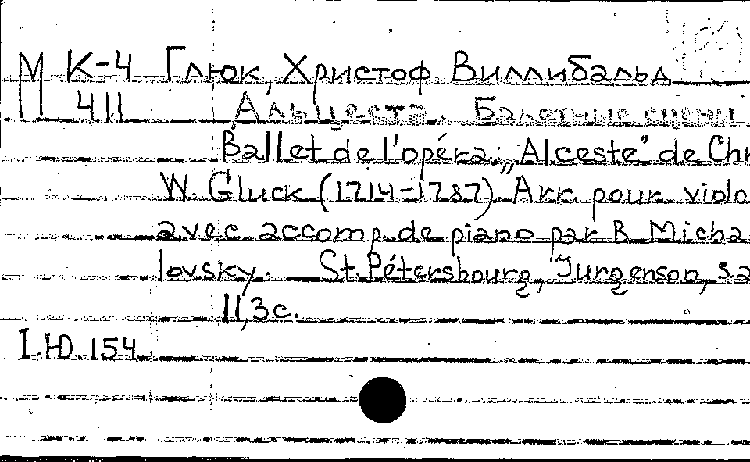 М К-4 Глюк, Христоф Виллибальд
411 Альцеста. Балетные сцены
Ballet de l'opéra: „Alceste" de Chr
W. Gluck (1714-1787) Arr. pour violo
avec accomp. de piano par B. Micha
lovsky. St. Pétersbourg, Jurgenson, sa
11,3с.
I.Ю.154